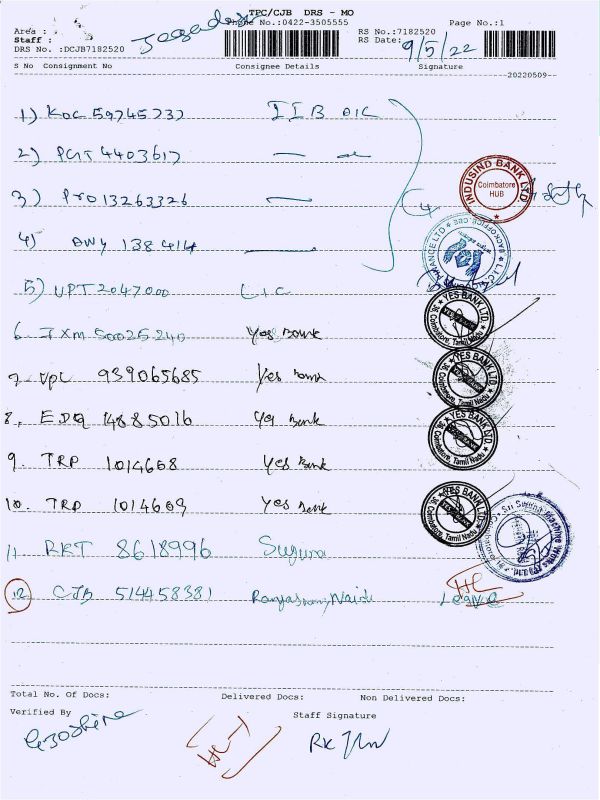 TPC/CJB DRS - MO
Phone No.:0422-3505555
Page No.:1
Area :
Staff :
DRS No. :DCJB7182520
RS No.:7182520
RS Date:
9/5/22
S No Consignment No Consignee Details Signature
20220509
1) KOC 59745737 IIB
2) PGT 4403617 — —
3) PRO 13263326 —
4) 138414 —
4
5) UPT 2047000 LIC
6. IXM 50025240 Yes Bank
7. VPL 939065685 Yes Bank
8. EDQ 14885016 Yes Bank
9. TRP 1014668 Yes Bank
10. TRP 1014669 Yes Bank
11 RKT 8618996 Suguna
12 CJB 514458381 Rangasamy Naidu Leave
INDUSIND BANK LTD.
Coimbatore
HUB
YES BANK LTD.
36, Coimbatore, Tamil Nadu
YES BANK LTD.
36, Coimbatore, Tamil Nadu
YES BANK LTD.
36, Coimbatore, Tamil Nadu
YES BANK LTD.
36, Coimbatore, Tamil Nadu
Total No. Of Docs: Delivered Docs: Non Delivered Docs:
Verified By
Staff Signature